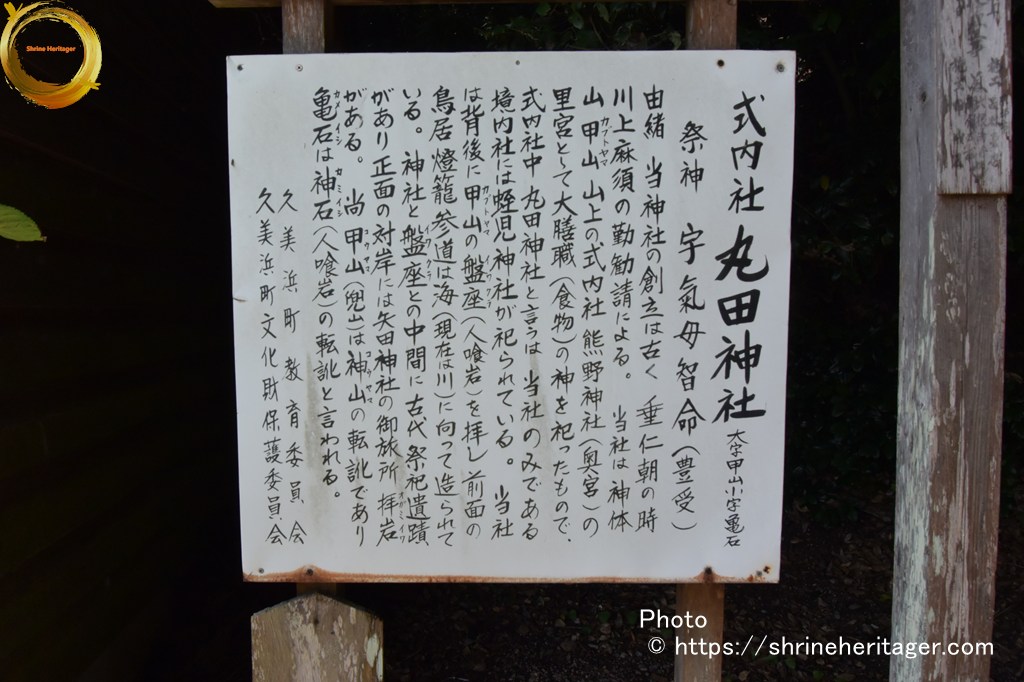 Shrine Heritager
式内社 丸田神社 大字甲山小字亀石
祭神 宇氣母智命(豊受)
由緒 当神社の創立は古く 垂仁朝の時
川上麻須の勤勧請による。 当社は神体
山 甲山 山上の式内社 熊野神社(奥宮)の
カブトヤマ
里宮として大膳職(食物)の神を祀ったもので、
式内社中 丸田神社と言うは 当社のみである
境内社には蛭児神社が祀られている。 当社
は背後に甲山の盤座(人喰岩)を拝し 前面の
カブトヤマ イワクラ
鳥居 燈籠 参道は海(現在は川)に向って造られて
いる。神社と盤座との中間に古代祭祀遺蹟
イワクラ
があり正面の対岸には矢田神社の御旅所 拝岩
オガミイワ
がある。 尚 甲山(兜山)は神山の転訛であり
コウヤマ コウヤマ
亀石は神石(人喰岩の転訛と言われる。
カメイシ カミイシ
久美浜町教育委員会
久美浜町文化財保護委員会
Photo
© https://shrineheritager.com